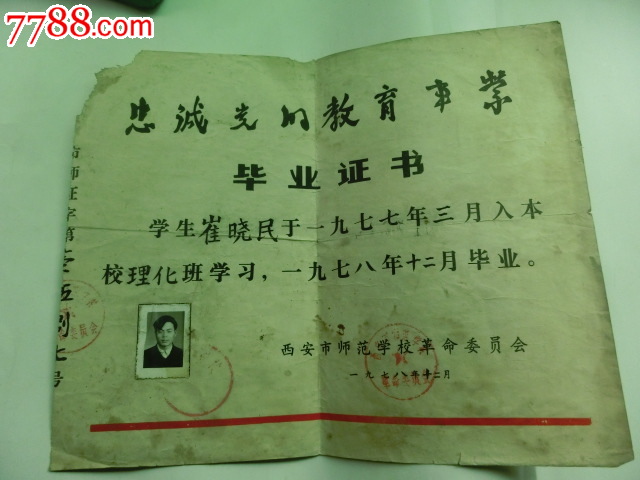 7788.com
忠诚党的教育事業
毕业证书
学生崔晓民于一九七七年三月入本
校理化班学习，一九七八年十二月毕业。
西安市师范学校革命委员会
一九七八年十二月
市师证字第壹伍捌七号